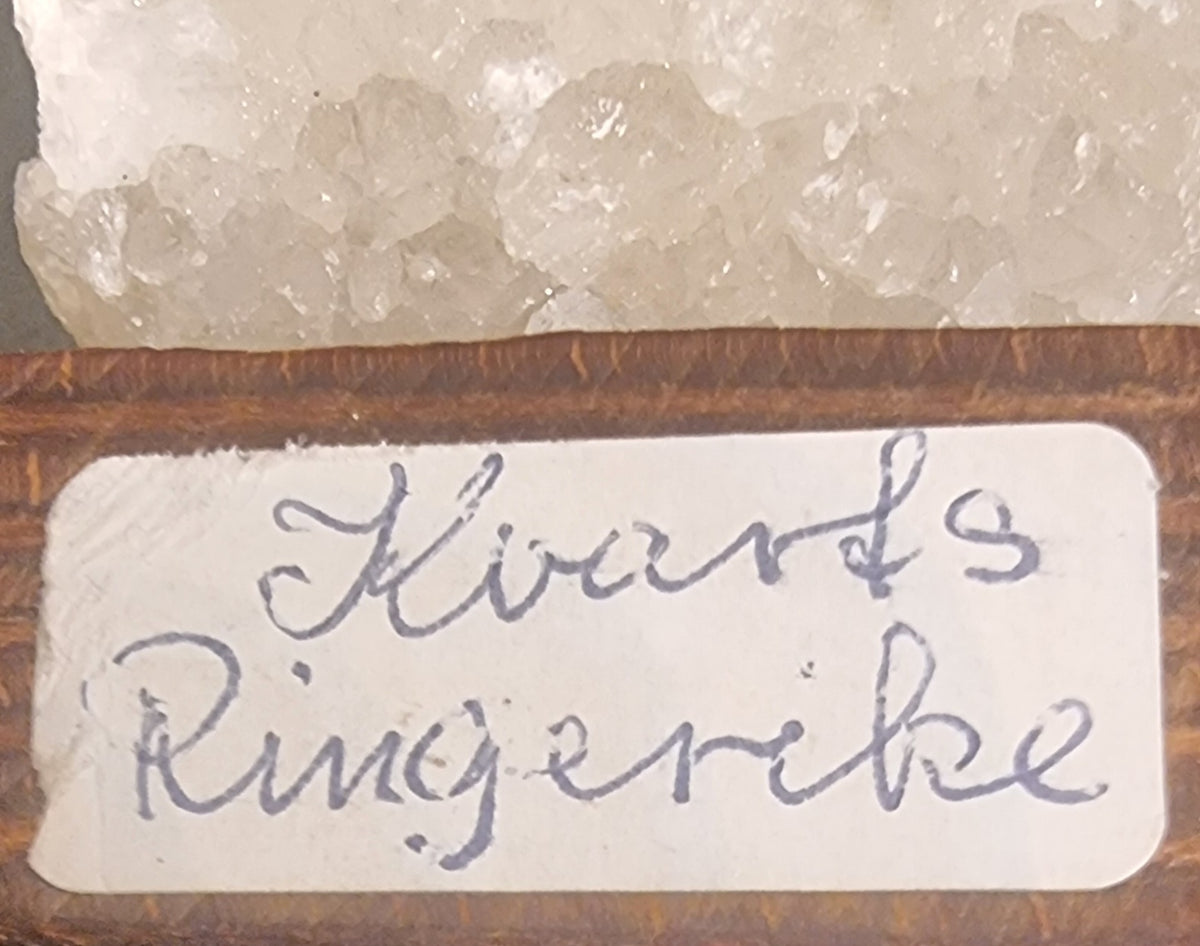 Kvarts
Ringerike